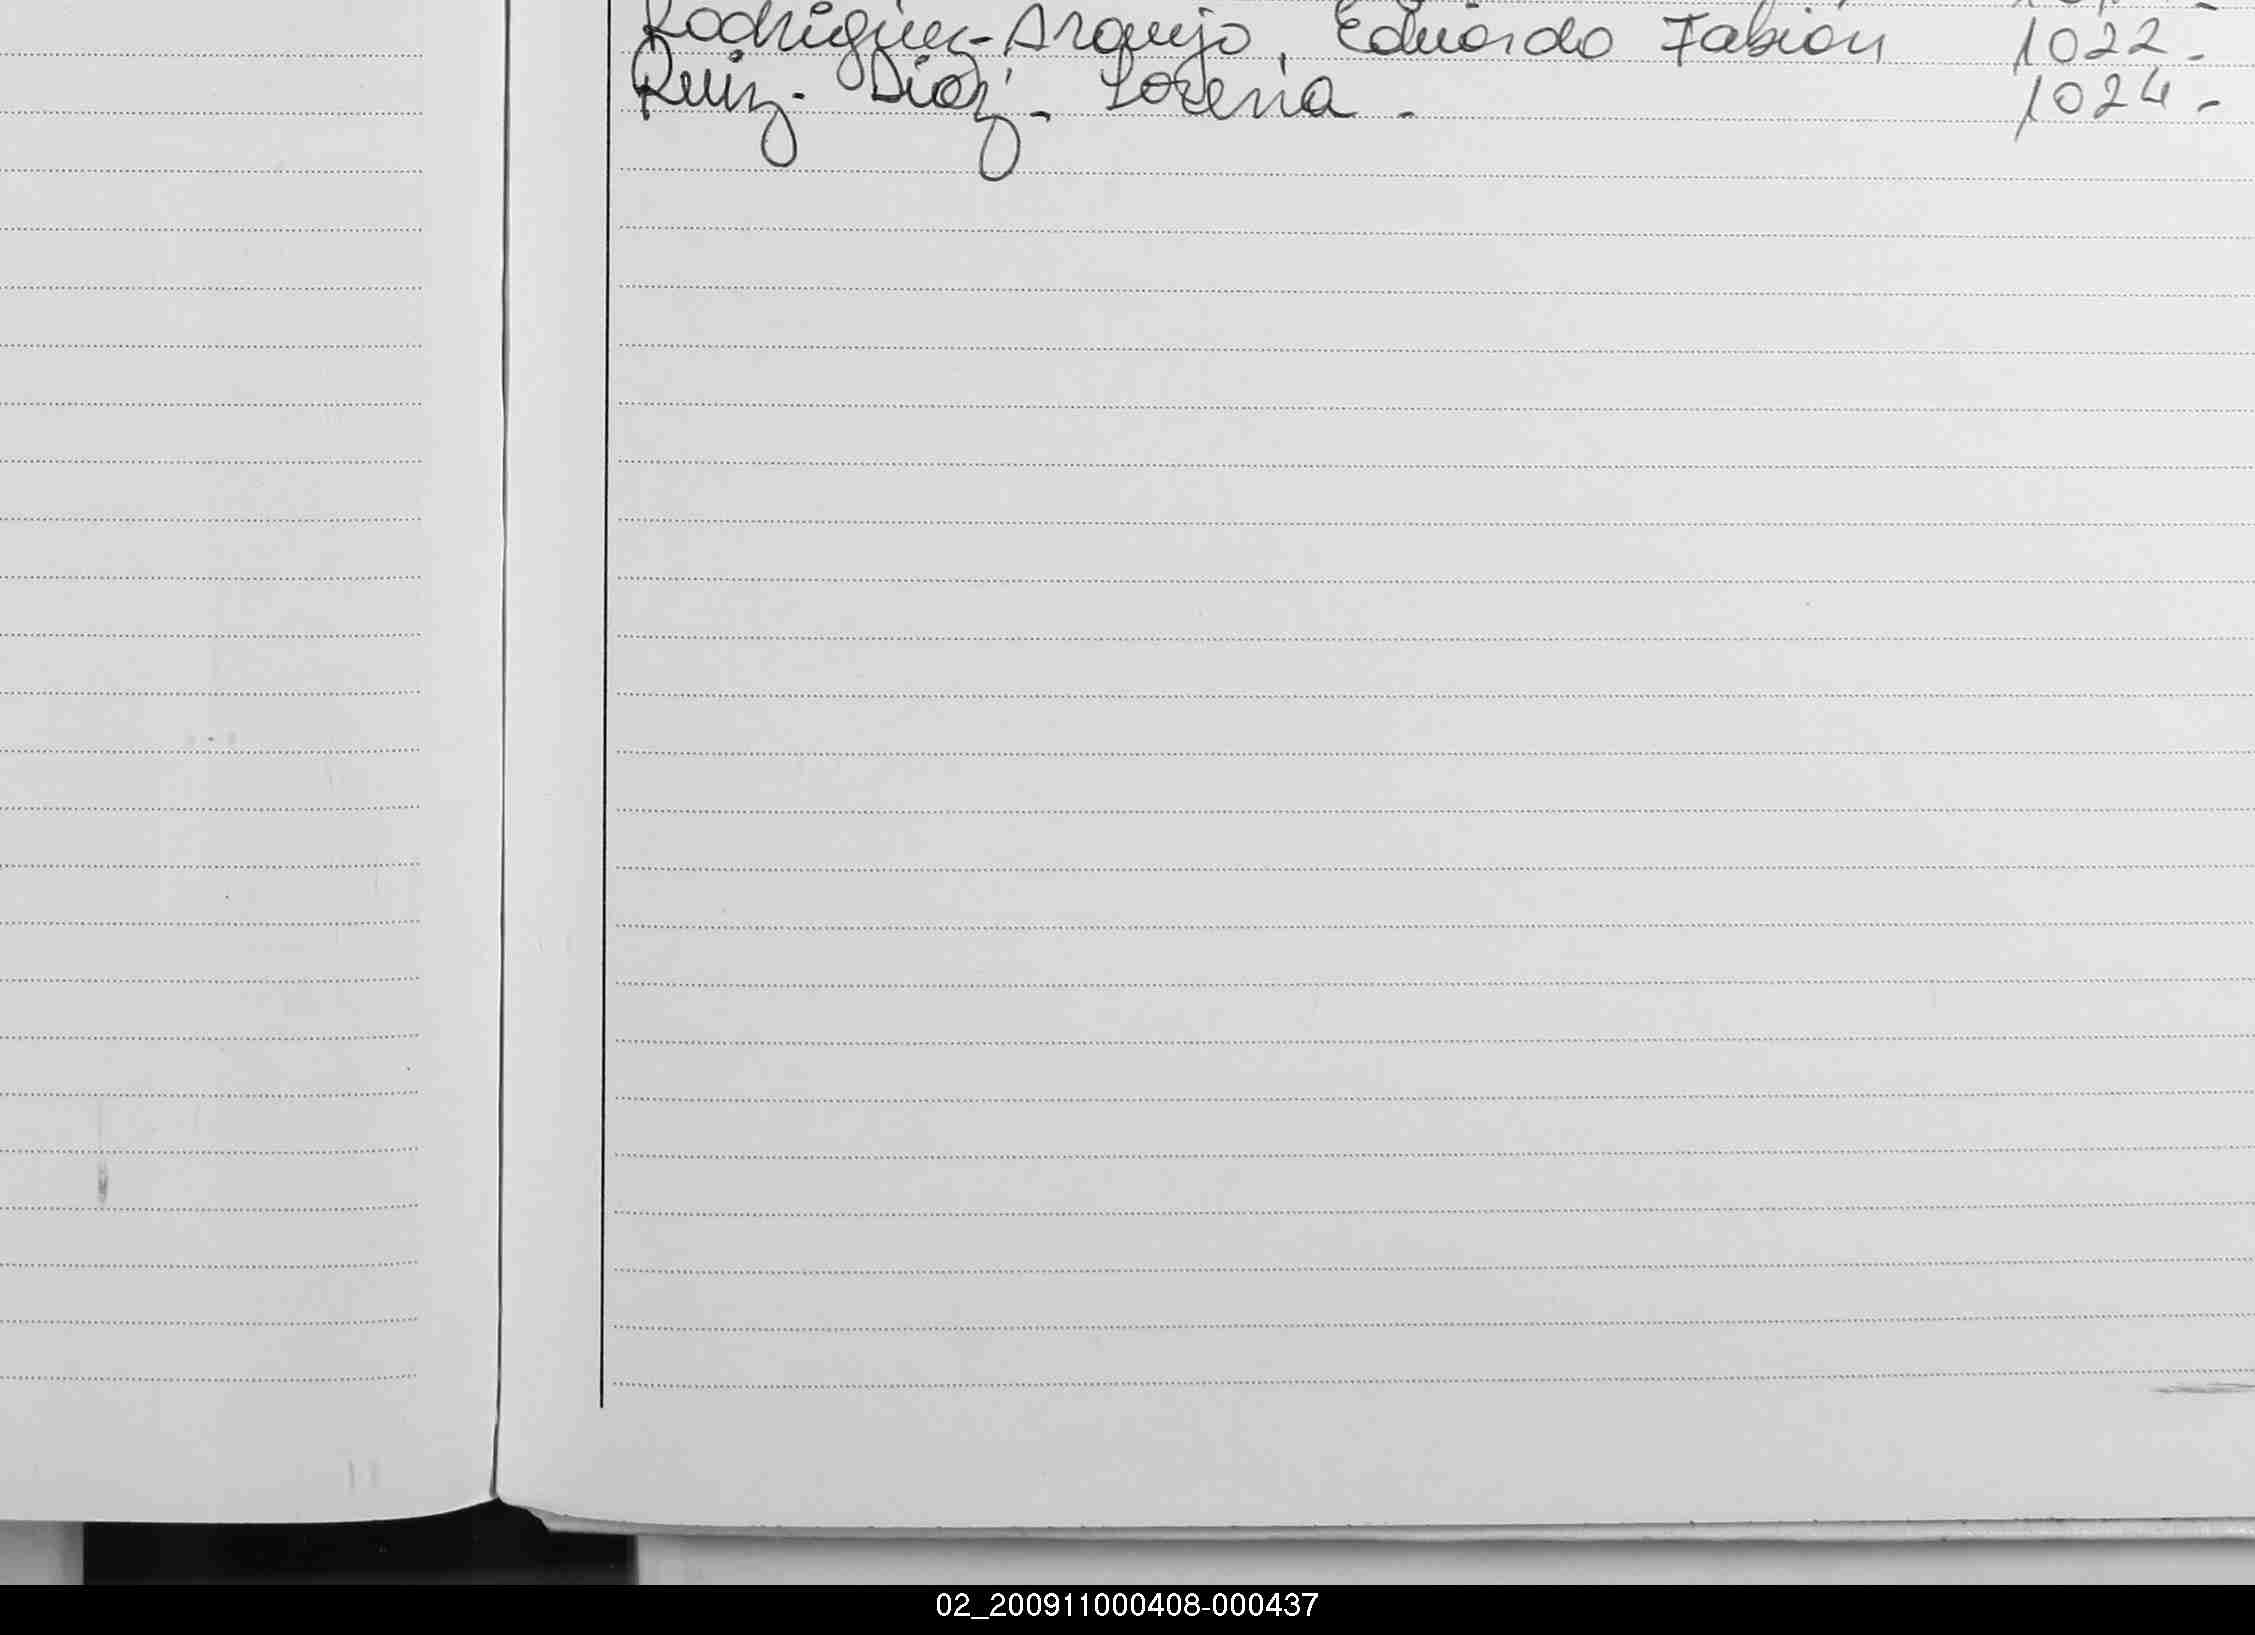 Rodriguez-Araujo, Eduardo Fabián 1022-
Ruiz-Diaz- Lorena. 1024-
02_200911000408-000437